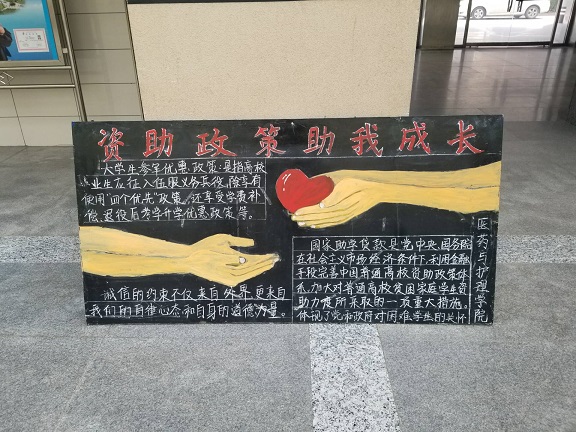 资助政策助我成长
大学生参军优惠政策:是指高校
毕业生应征入伍服义务兵役,除享有
使用"四个优先"政策,还享受学费补
偿、退役后考学升学优惠政策等。
诚信的约束不仅来自外界,更来自
我们的自律心态和自身的道德力量。
国家助学贷款是党中央、国务院
在社会主义市场经济条件下,利用金融
手段完善中国普通高校资助政策体
系,加大对普通高校贫困家庭学生资
助力度所采取的一项重大措施。
体现了党和政府对困难学生的关怀
医药与护理学院